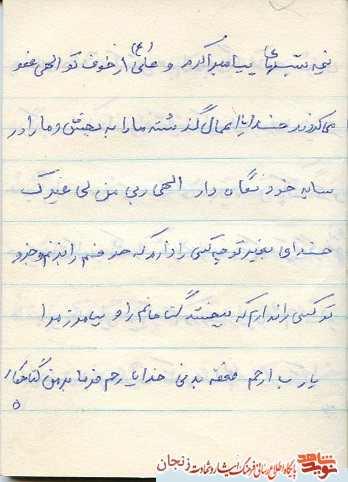 نیمه شبهای پیامبر اکرم و علی (ع) از خوف تو الهی عفو
می‌کردند خدایا اعمال گذشته ما را به بخش و ما را در
سایه خود نگاه دار الهی ربی من لی غیرک
خدای بغیر تو چه کسی را دارم که حرفم را بزنم و جز و
تو کسی را ندارم که ببخشد گناهانم را و بیامرزد مرا
یارب ارحم ضعف بدنی خدایا رحم فرما بر من گناهکار
۵
نوید شاهد
پایگاه اطلاع رسانی فرهنگ ایثار و شهادت زنجان